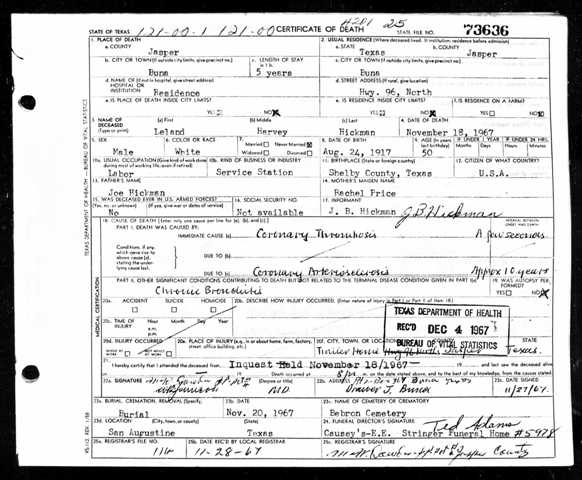 STATE OF TEXAS 121-00-1 121-00 CERTIFICATE OF DEATH 25 STATE FILE NO. 73636
1. PLACE OF DEATH 2. USUAL RESIDENCE (Where deceased lived. If institution: residence before admission)
a. COUNTY Jasper a. STATE Texas b. COUNTY Jasper
b. CITY OR TOWN (If outside city limits, give precinct no.) c. LENGTH OF STAY c. CITY OR TOWN (If outside city limits, give precinct no.)
Buna 5 years Buna
d. NAME OF (If not in hospital, give street address) d. STREET ADDRESS (If rural, give location)
HOSPITAL OR INSTITUTION Residence Hwy. 96, North
e. IS PLACE OF DEATH INSIDE CITY LIMITS? e. IS RESIDENCE INSIDE CITY LIMITS? f. IS RESIDENCE ON A FARM?
YES NO YES NO YES NO
3. NAME OF DECEASED (a) First (b) Middle (c) Last 4. DATE OF DEATH
(Type or print) Leland Harvey Hickman November 18, 1967
5. SEX 6. COLOR OR RACE 7. Married Never Married 8. DATE OF BIRTH 9. AGE (In years IF UNDER 1 YEAR IF UNDER 24 HRS.
Male White Widowed Divorced Aug. 24, 1917 50 Months Days Hours
10a. USUAL OCCUPATION (Give kind of work done 10b. KIND OF BUSINESS OR INDUSTRY 11. BIRTHPLACE (State or foreign country) 12. CITIZEN OF WHAT COUNTRY?
Labor Service Station Shelby County, Texas U.S.A.
13. FATHER'S NAME 14. MOTHER'S MAIDEN NAME
Joe Hickman Rachel Price
15. WAS DECEASED EVER IN U.S. ARMED FORCES? 16. SOCIAL SECURITY NO. 17. INFORMANT
No Not available J. B. Hickman J.B. Hickman
18. CAUSE OF DEATH (Enter only one cause per line for (a), (b), and (c).) INTERVAL BETWEEN ONSET AND DEATH
PART I. DEATH WAS CAUSED BY:
IMMEDIATE CAUSE (a) Coronary Thrombosis A few seconds
DUE TO (b)
DUE TO (c) Coronary Arteriosclerosis Approx 10 years
PART II. OTHER SIGNIFICANT CONDITIONS CONTRIBUTING TO DEATH BUT NOT RELATED TO THE TERMINAL DISEASE CONDITION GIVEN IN PART I(a) 19. WAS AUTOPSY PERFORMED?
Chronic Bronchitis YES NO
20a. ACCIDENT SUICIDE HOMICIDE 20b. DESCRIBE HOW INJURY OCCURRED. (Enter nature of injury in Part I or Part II of item 18.)
20c. TIME OF INJURY Hour Month Day Year
a.m.
p.m.
TEXAS DEPARTMENT OF HEALTH
REC'D DEC 4 1967
BUREAU OF VITAL STATISTICS
20d. INJURY OCCURRED 20e. PLACE OF INJURY (e.g., in or about home, farm, factory, street, office building, etc.) 20f. CITY, TOWN, OR LOCATION COUNTY STATE
Texas.
I hereby certify that I attended the deceased from Inquest Held November 18/1967 last saw the deceased
Death occurred at on the date stated above, and to the best of my knowledge, from the causes stated.
22a. SIGNATURE (Degree or title) 22b. ADDRESS 22c. DATE SIGNED
MD 11/27/67
23a. BURIAL, CREMATION, REMOVAL (Specify) 23b. DATE 23c. NAME OF CEMETERY OR CREMATORY
Burial Nov. 20, 1967 Hebron Cemetery
23d. LOCATION (City, town, or county) (State) 24. FUNERAL DIRECTOR'S SIGNATURE Ted Adams
San Augustine Texas Causey's-E.E. Stringer Funeral Home #5978
25a. REGISTRAR'S FILE NO. 25b. DATE REC'D BY LOCAL REGISTRAR 25c. REGISTRAR'S SIGNATURE
116 11-28-67 Jasper County
TEXAS DEPARTMENT OF HEALTH — BUREAU OF VITAL STATISTICS
MEDICAL CERTIFICATION